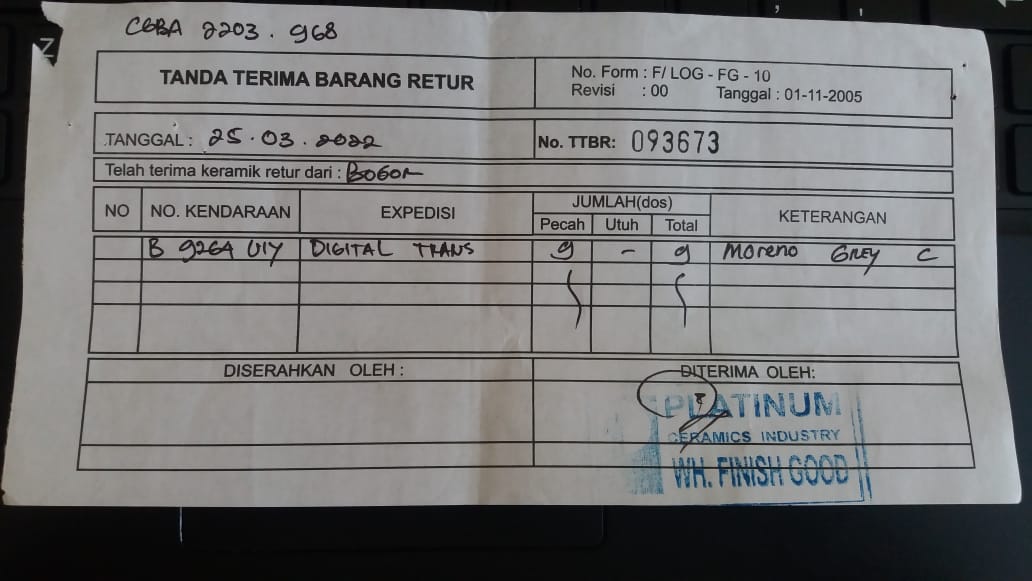 CGBA 2203. 968
TANDA TERIMA BARANG RETUR
No. Form : F/ LOG - FG - 10
Revisi : 00 Tanggal : 01-11-2005
TANGGAL : 25.03.2022
No. TTBR: 093673
Telah terima keramik retur dari : BOGOR
NO NO. KENDARAAN EXPEDISI JUMLAH(dos) KETERANGAN
Pecah Utuh Total
B 9264 UIY DIGITAL TRANS 9 - 9 Moreno GREY C
DISERAHKAN OLEH : DITERIMA OLEH:
PLATINUM
CERAMICS INDUSTRY
WH. FINISH GOOD